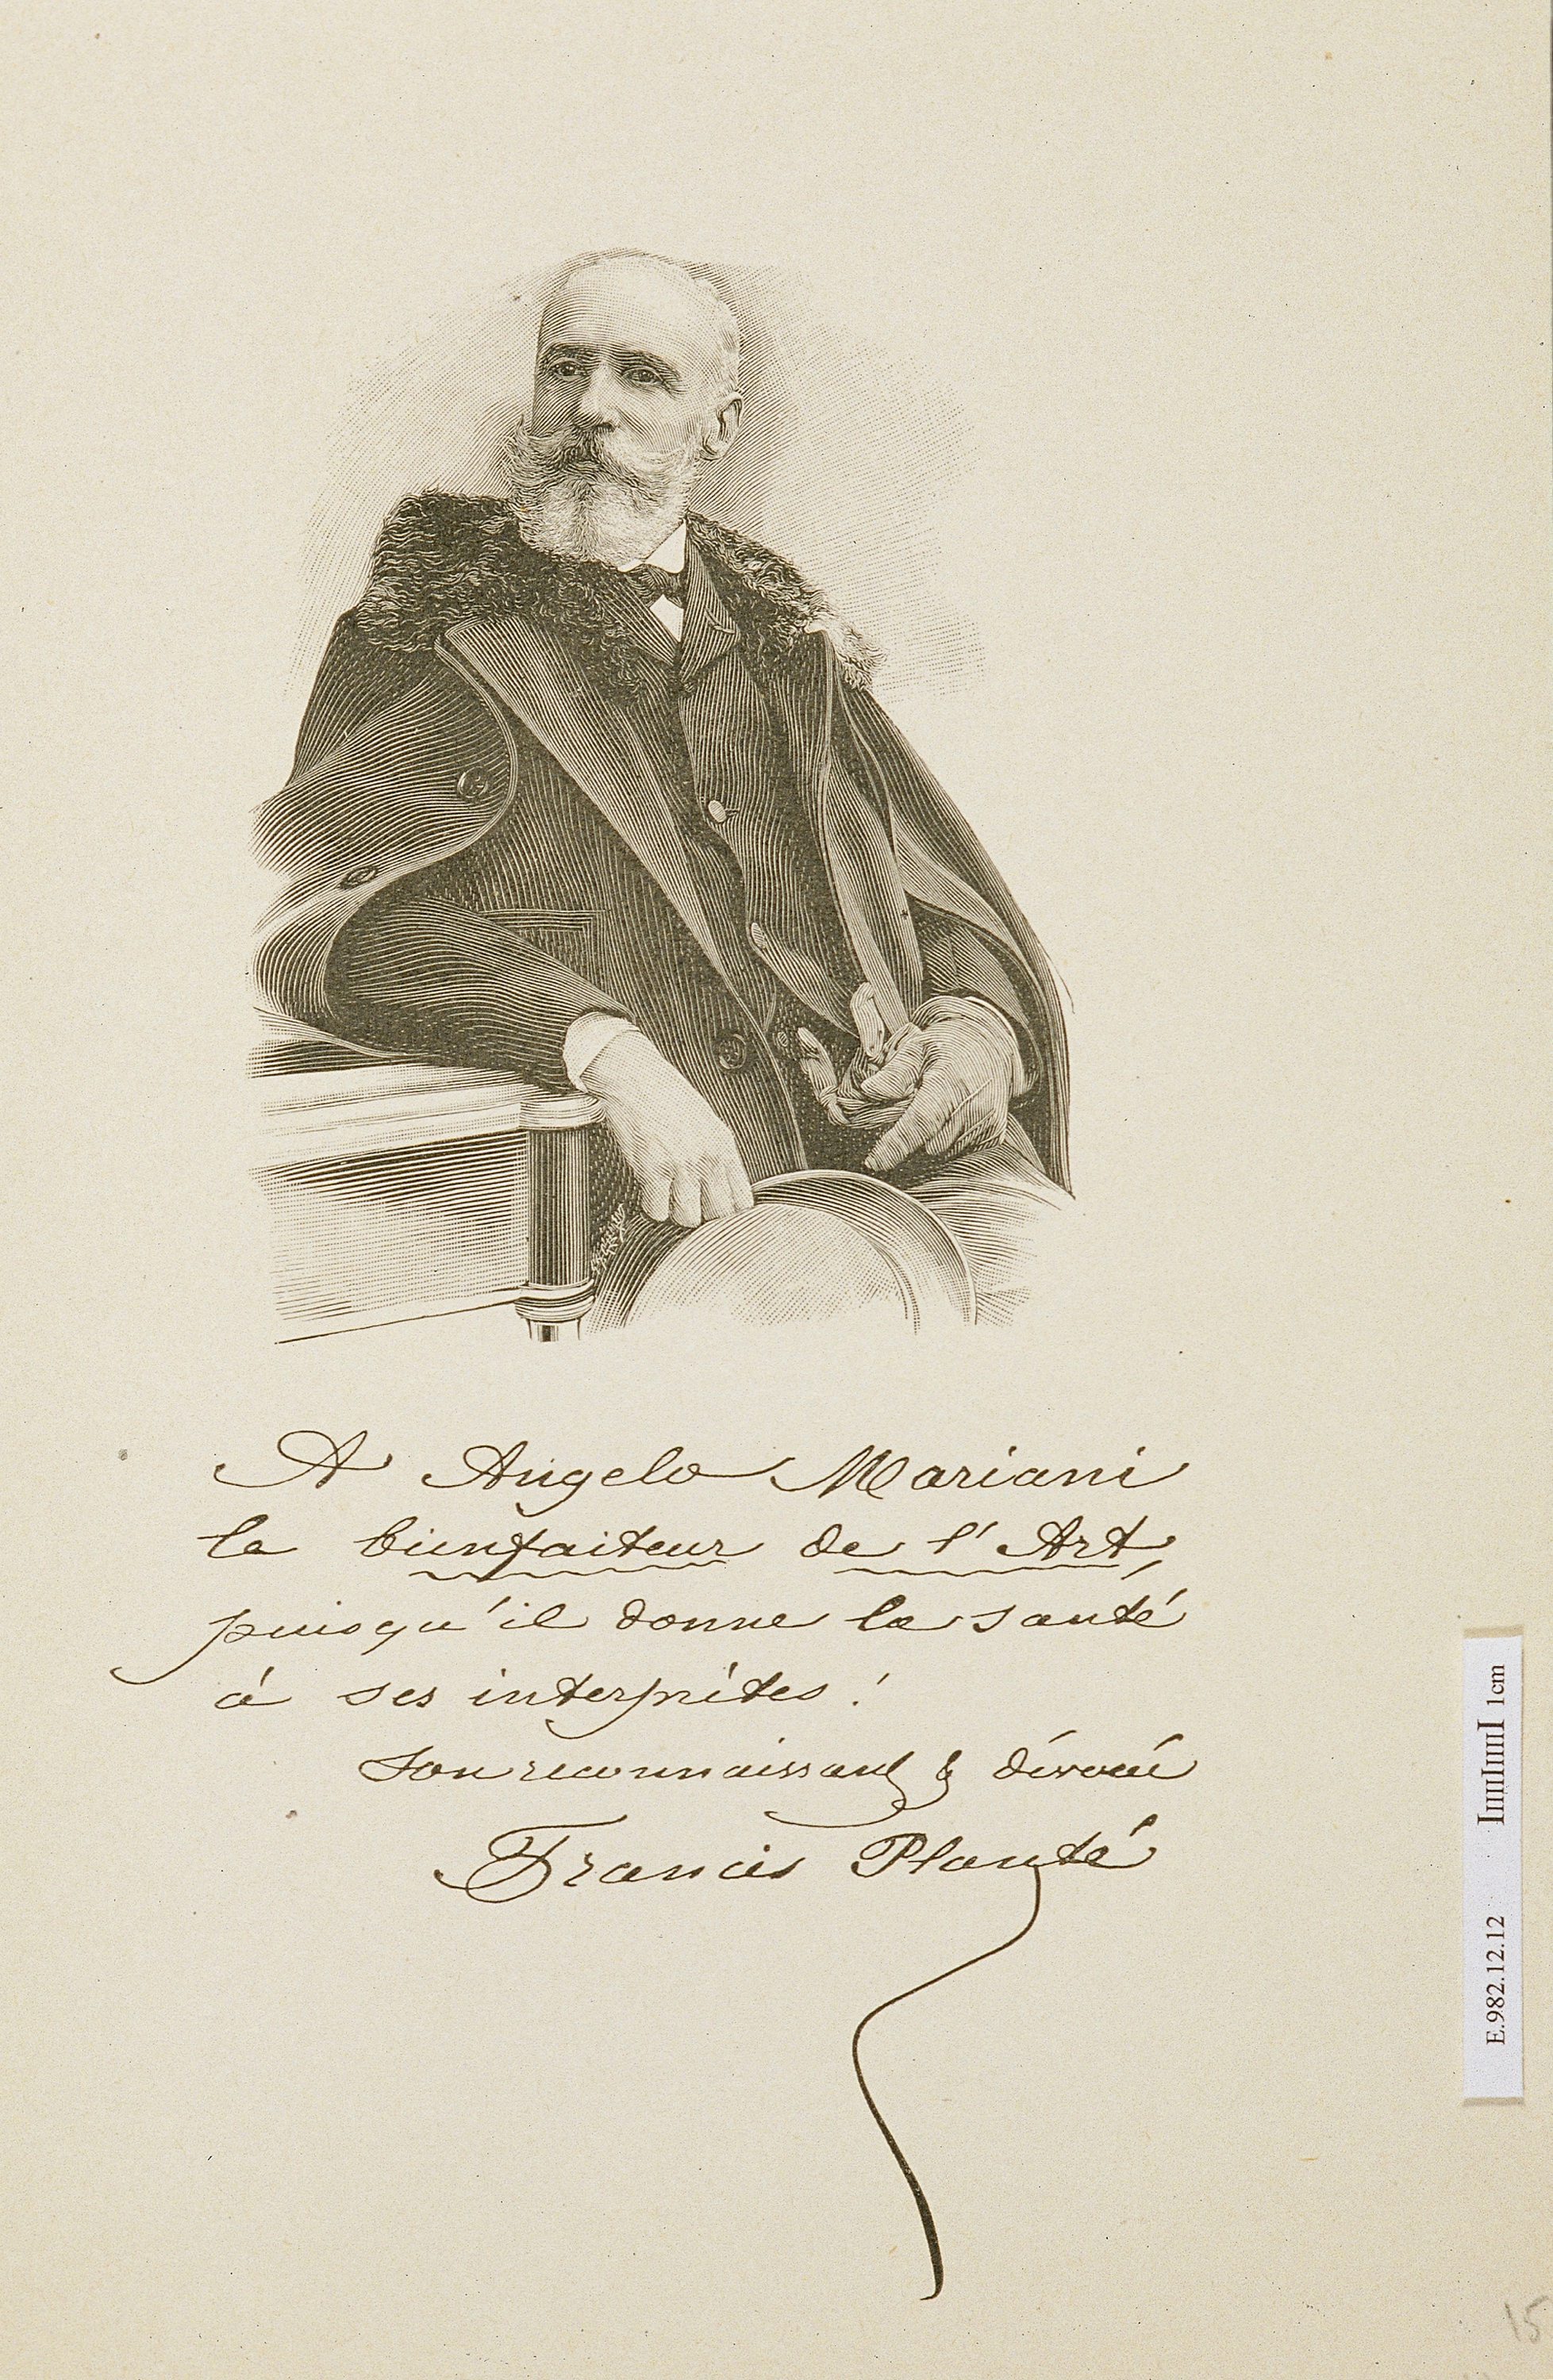 A Angelo Mariani
le bienfaiteur de l'Art,
puisqu'il donne la santé
à ses interprètes !
Son reconnaissant & dévoué
Francis Planté
1cm
E.982.12.12
15